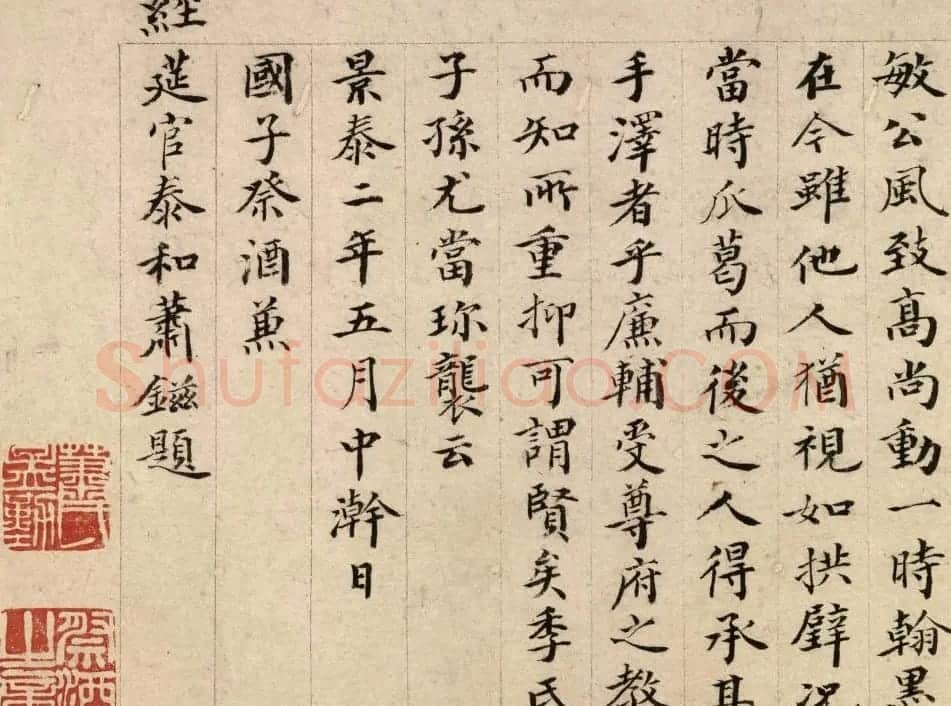 敏公風致高尚動一時翰墨
在今雖他人猶視如拱璧況
當時瓜葛而後之人得承其
手澤者乎廉輔受尊府之教
而知所重抑可謂賢矣季氏
子孫尤當珎襲云
景泰二年五月中澣日
國子祭酒兼
經
筵官泰和蕭鎡題
Shufaziliao.COM